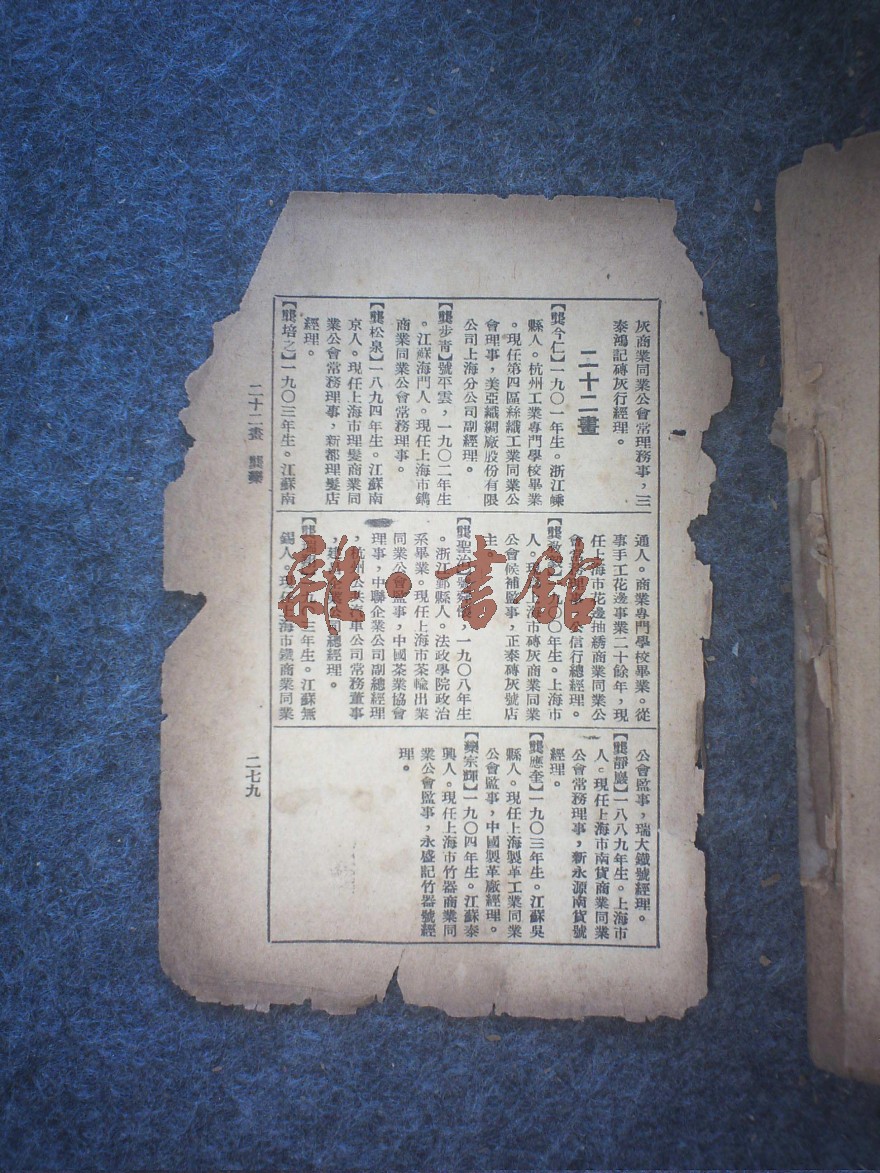 灰商業同業公會常理務事，三
泰鴻記磚灰行經理。
二十二畫
【龔今仁】一九〇一年生。浙江嵊
縣人。杭州工業專門學校畢業
。現任第四區絲織工業同業公
會理事，美亞織綢廠股份有限
公司上海分公司副經理。
【龔步青】號平雲，一九〇二年生
。江蘇海門人。現任上海市鐫
商業同業公會常務理事。
【龔松泉】一八九四年生。江蘇南
京人。現任上海市理髮商業同
業公會常務理事，新都理髮店
經理。
【龔培之】一九〇三年生。江蘇南
通人。商業專門學校畢業。從
事手工花邊事業二十餘年，現
任上海市花邊抽綉商業同業公
會理事，信行總經理。
【龔〇〇年生。上海市
人。現任上海市磚灰商業同業
公會候補監事，正泰磚灰號店
主
【龔聖治】一九〇八年生
。浙江鄞縣人。法政學院政治
系畢業。現任上海市茶輸出業
同業公會監事，中國茶業協會
理事，中聯企業公司副總經理
，杭州公共汽車公司常務董事
，建公司總經理。
【龔三年生。江蘇無
錫人。現任上海市鐵商業同業
公會監事，瑞大鐵號經理。
【龔靜巖】一八八九年生。上海市
人。現任上海市南貨商業同業
公會常務理事，新永源南貨號
經理。
【龔應奎】一九〇三年生。江蘇吳
縣人。現任上海製革工業同業
公會監事，中國製革廠經理。
【欒宗輝】一九〇四年生。江蘇泰
興人。現任上海市竹器商業同
業公會監事，永盛記竹器號經
理。
二十二畫　龔欒
二七九
雜·書館